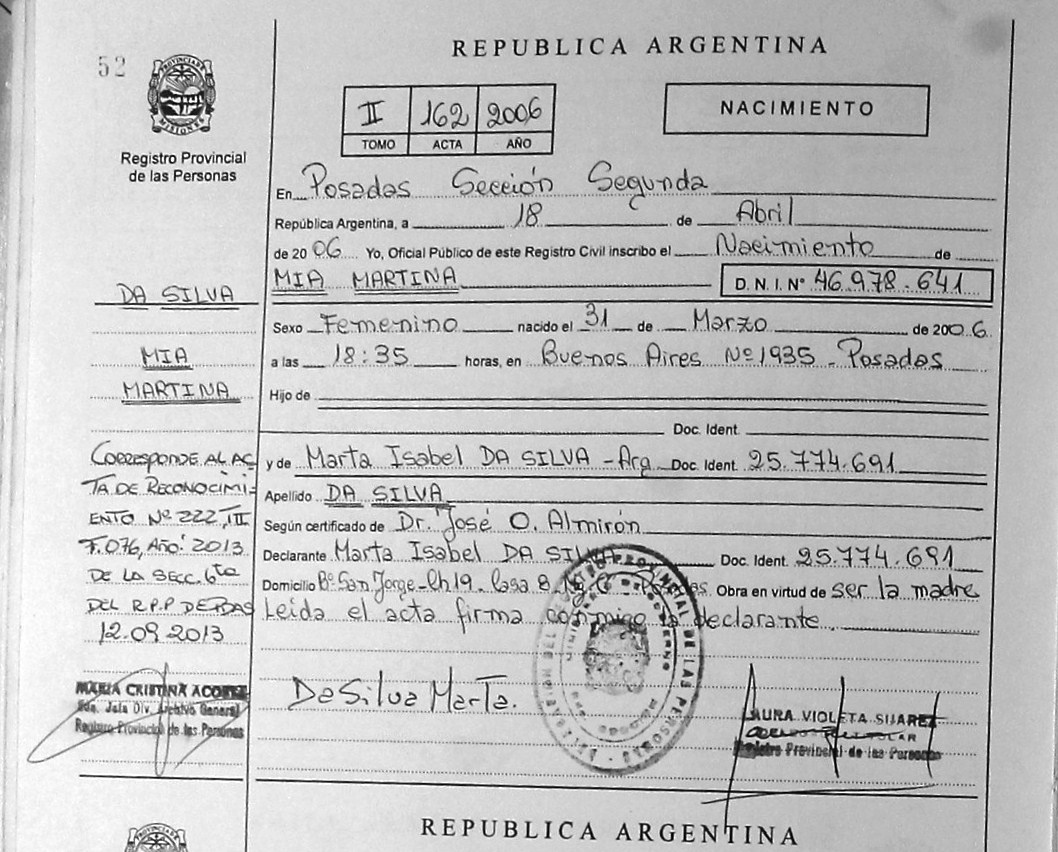 REPUBLICA ARGENTINA
52
PROVINCIA DE MISIONES
Registro Provincial
de las Personas
II 162 2006
TOMO ACTA AÑO
NACIMIENTO
En Posadas Sección Segunda
República Argentina, a 18 de Abril
de 2006 Yo, Oficial Público de este Registro Civil inscribo el Nacimiento de
MIA MARTINA D. N. I. Nº 46.978.641
DA SILVA
MIA
MARTINA
Sexo Femenino nacido el 31 de Marzo de 2006
a las 18:35 horas, en Buenos Aires Nº 1935 - Posadas
Hijo de
Doc. Ident.
y de Marta Isabel DA SILVA - Arg. Doc. Ident. 25.774.691
Apellido DA SILVA
Según certificado de Dr. José O. Almirón
Declarante Marta Isabel DA SILVA Doc. Ident. 25.774.691
Domicilio Bº San Jorge - Ch 19 - Casa 8 Obra en virtud de ser la madre
Leida el acta firma conmigo la declarante
CORRESPONDE AL AC
TA DE RECONOCIMI-
ENTO Nº 222, III
F. 076, AÑO: 2013
DE LA SECC. 6ta
DEL R.P.P DE PDAS
12.09.2013
MARIA CRISTINA ACOSTA
Jefa Div. Archivo General
Registro Provincial de las Personas
Da Silva Marta.
REGISTRO PROVINCIAL DE LAS PERSONAS
MINISTERIO DE GOBIERNO
LAURA VIOLETA SUAREZ
Registro Provincial de las Personas
REPUBLICA ARGENTINA
PROVINCIA DE